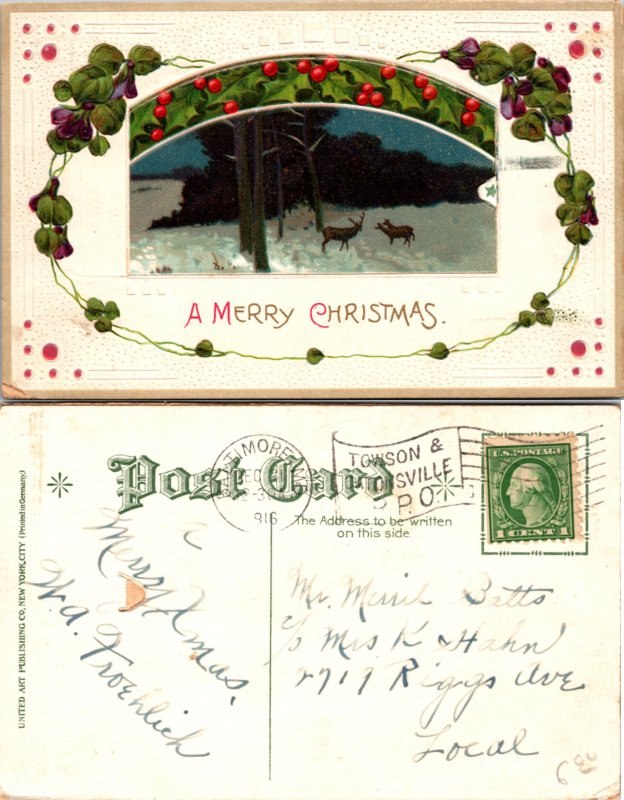 A MERRY CHRISTMAS.
UNITED ART PUBLISHING CO. NEW YORK CITY (Printed in Germany)
Post Card
The Address to be written
on this side
BALTIMORE
DEC
1916
TOWSON &
P.O.
U.S. POSTAGE
1 CENT 1
a
Merry Xmas.
W.A. Froehlich
Mr. Merril Batts
c/o Mrs K Hahn
2719 Riggs Ave
Local